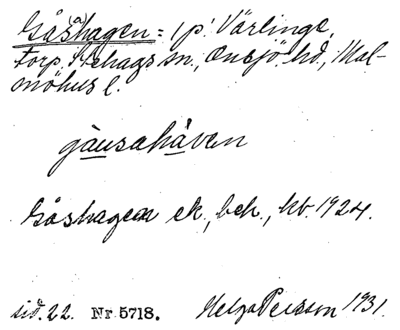 Gås(a)hagen = 1 p. Värlinge,
Torp. Askags sn., Onsjö hd, Mal-
möhus l.
gàusahàven
Gåshagen ek., beb., kb. 1924.
sid. 22. Nr 5718. Helge Persson 1931.